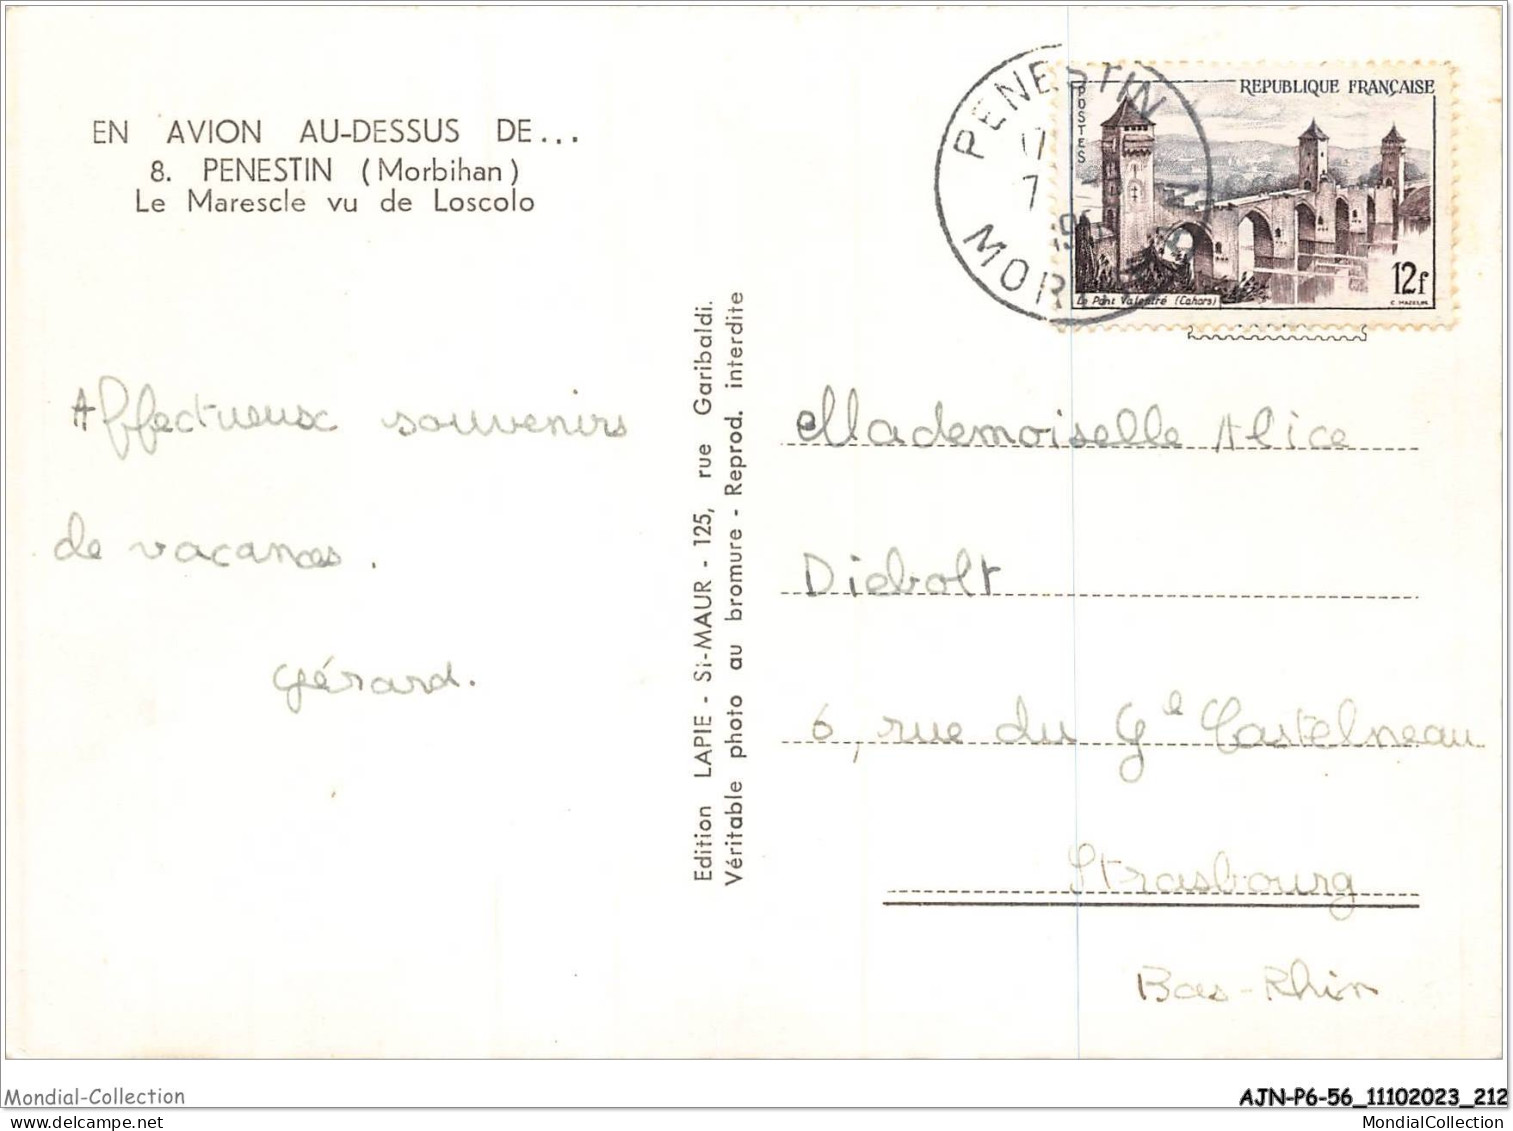 EN AVION AU-DESSUS DE...
8. PENESTIN (Morbihan)
Le Marescle vu de Loscolo
PENESTIN
MOR
REPUBLIQUE FRANÇAISE
POSTES
12f
Le Pont Valentré (Cahors)
C. MAZELIN
Affectueux souvenirs
de vacances.
Gérard.
Edition LAPIE - St-MAUR - 125, rue Garibaldi.
Véritable photo au bromure - Reprod. interdite
Mademoiselle Alice
Diebolt
6, rue du Gˡᵉ Castelneau
Strasbourg
Bas-Rhin
Mondial-Collection
AJN-P6-56_11102023_212
delcampe.net
MondialCollection